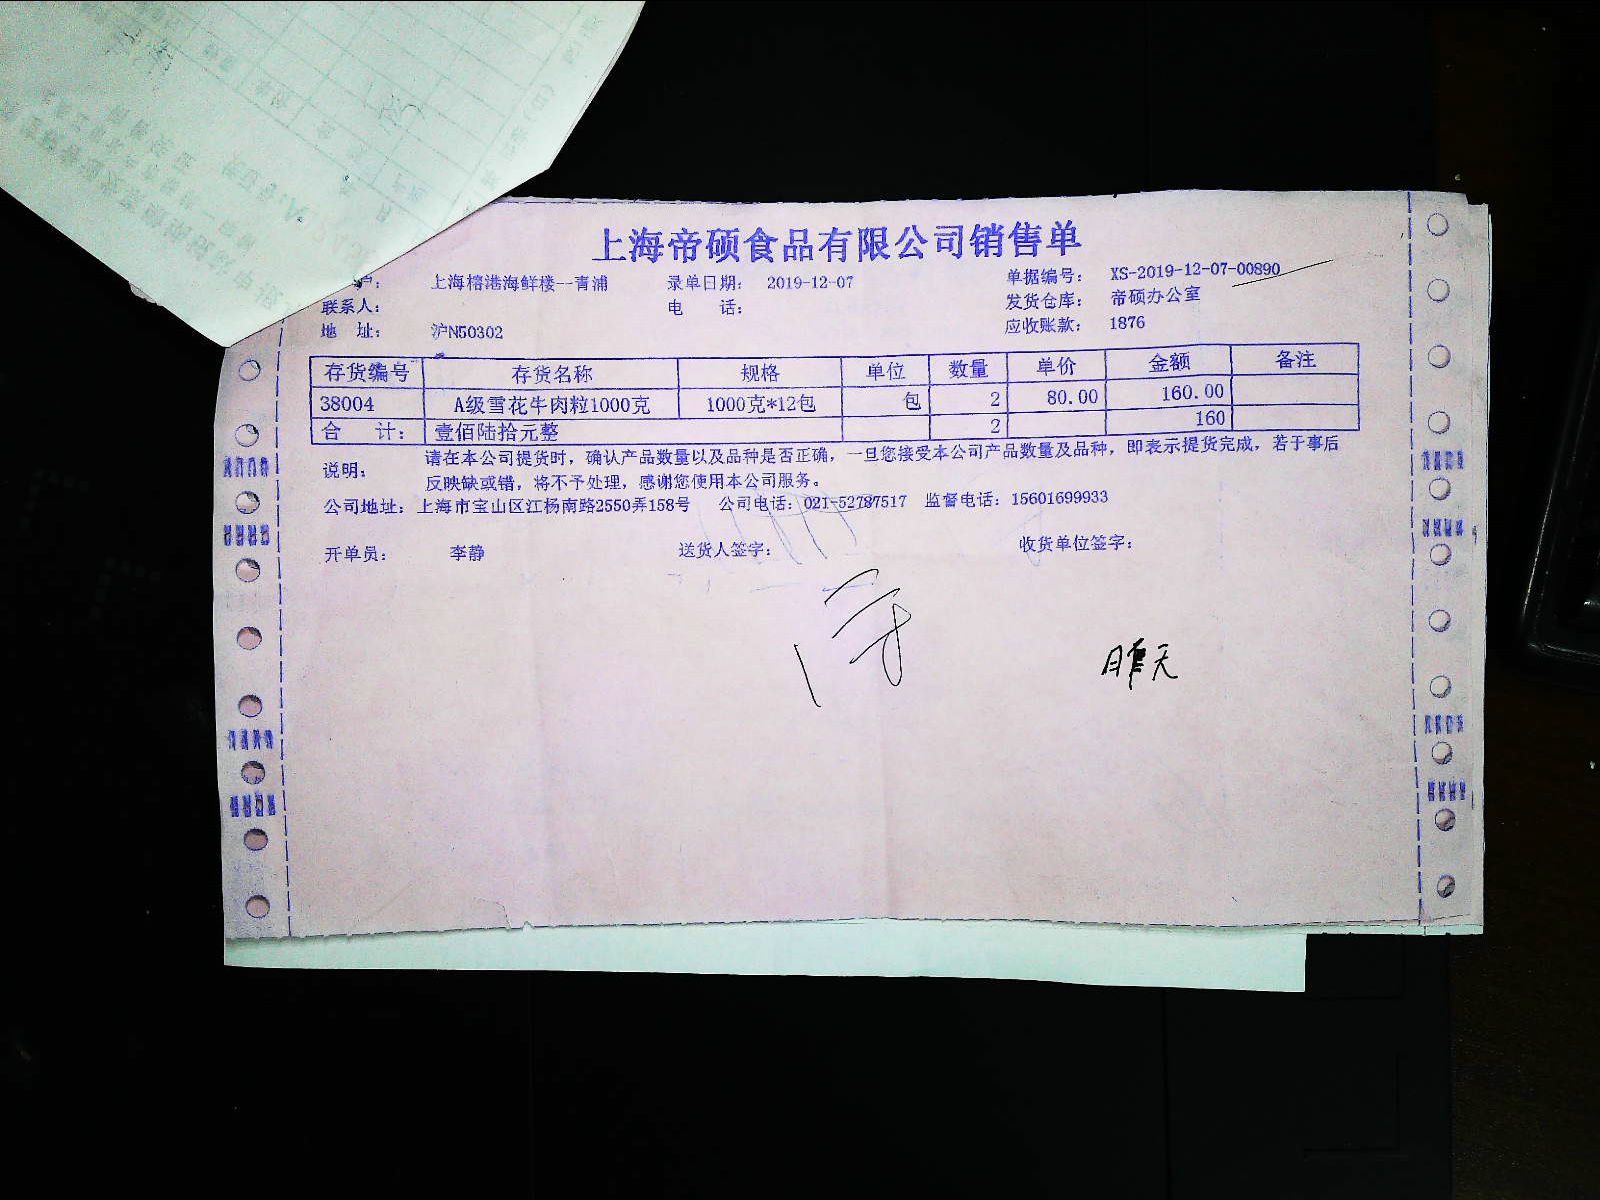 上海帝硕食品有限公司销售单
户： 上海榕港海鲜楼--青浦 录单日期： 2019-12-07 单据编号： XS-2019-12-07-00890
联系人： 电 话： 发货仓库： 帝硕办公室
地 址： 沪N50302 应收账款： 1876
存货编号 存货名称 规格 单位 数量 单价 金额 备注
38004 A级雪花牛肉粒1000克 1000克*12包 包 2 80.00 160.00
合 计： 壹佰陆拾元整 2 160
说明： 请在本公司提货时，确认产品数量以及品种是否正确，一旦您接受本公司产品数量及品种，即表示提货完成，若于事后
反映缺或错，将不予处理，感谢您使用本公司服务。
公司地址：上海市宝山区江杨南路2550弄158号 公司电话：021-52787517 监督电话：15601699933
开单员： 李静 送货人签字： 收货单位签字：